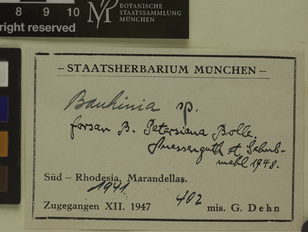 8 9 10
BOTANISCHE
STAATSSAMMLUNG
MÜNCHEN
right reserved
– STAATSHERBARIUM MÜNCHEN –
Bauhinia sp.
forsan B. Petersiana Bolle.
Suessenguth et
1948.
Süd – Rhodesia, Marandellas.
1941.
Zugegangen XII. 1947 402 mis. G. Dehn